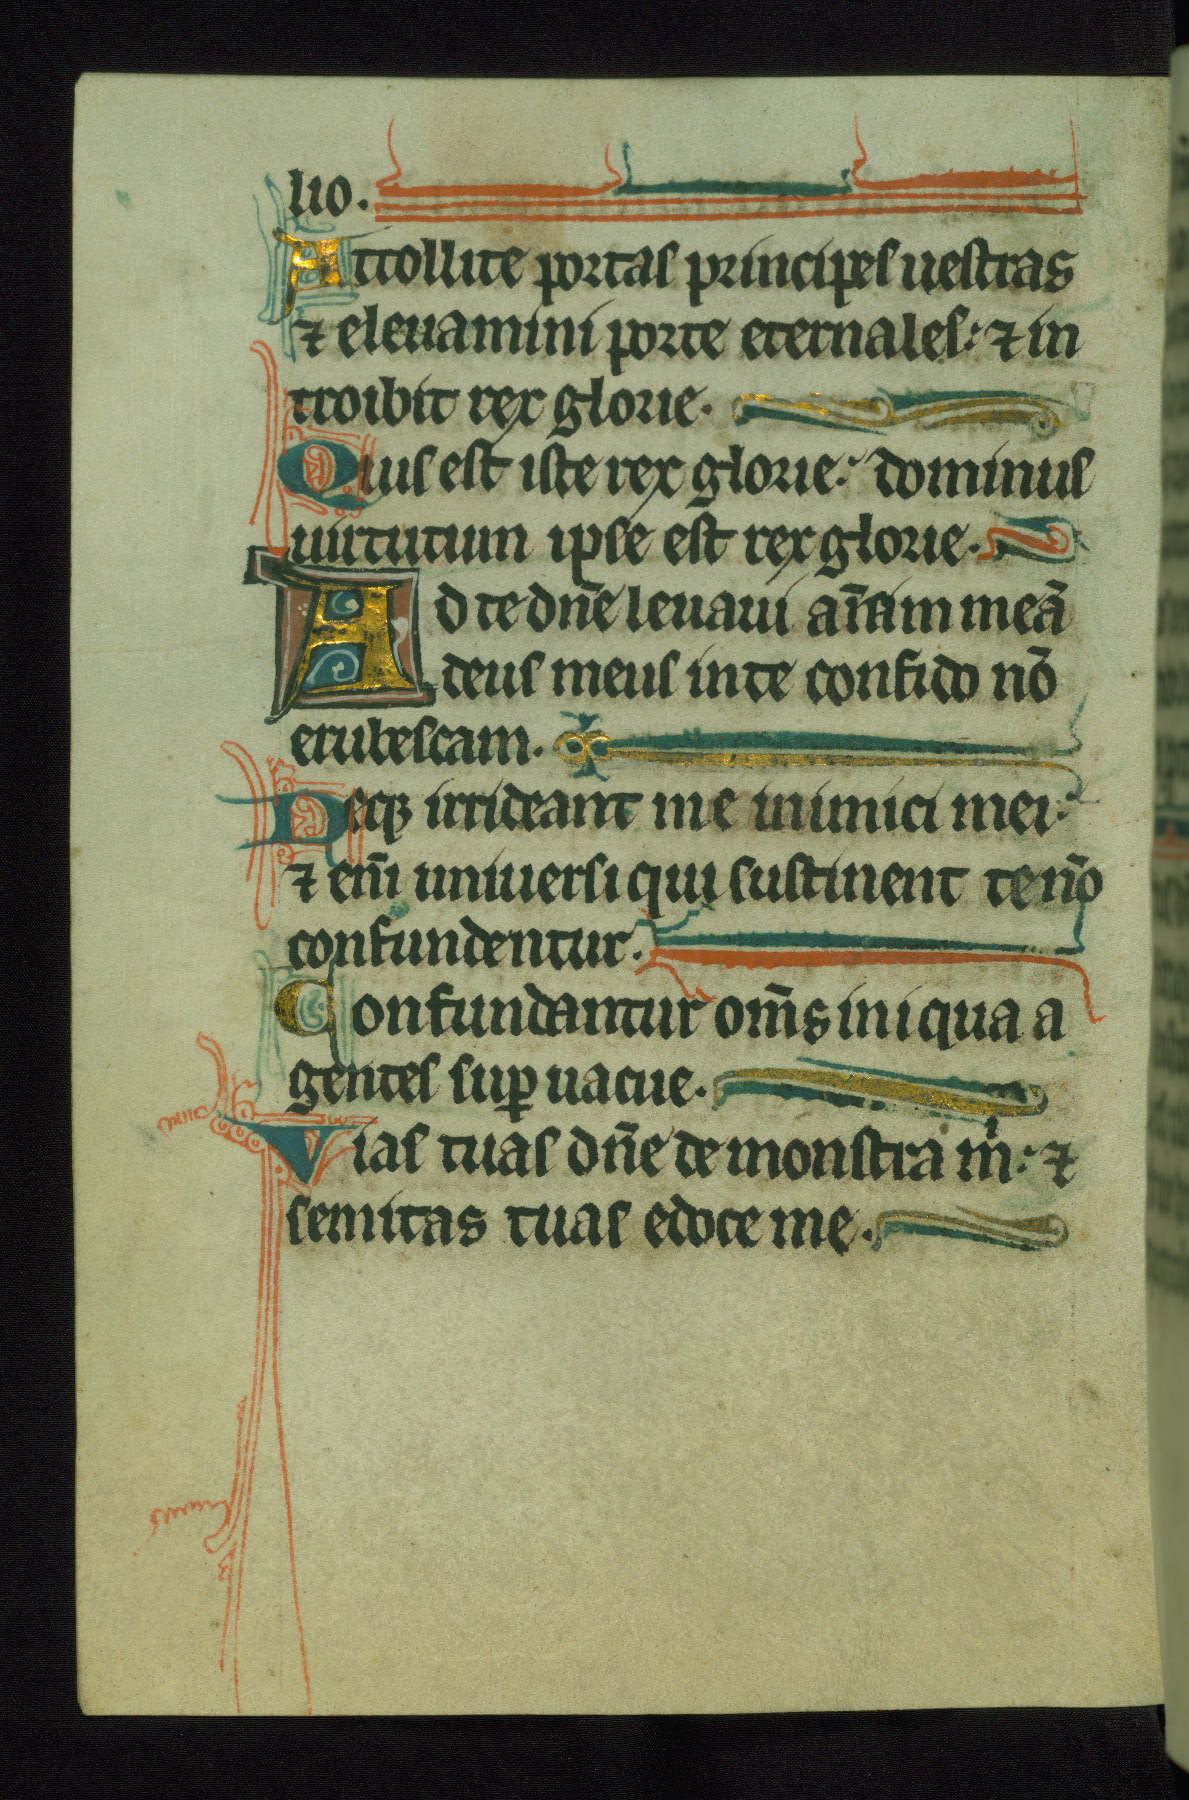 lio.
Attollite portas principes uestras
⁊ eleuamini porte eternales: ⁊ in
troibit rex glorie.
Quis est iste rex glorie: dominus
uirtutum ipse est rex glorie.
Ad te dn̄e leuaui an̄iam meā
deus meus in te confido nō
erubescam.
Neqꝫ irrideant me inimici mei:
⁊ eni̅ uniuersi qui sustinent te nō
confundentur.
Confundantur om̄s iniqua a
gentes suꝑ uacue.
Vias tuas dn̄e demonstra m̍: ⁊
semitas tuas edoce me.